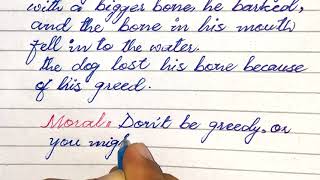 with a bigger bone, he barked,
and the bone in his mouth
fell in to the water.
the dog lost his bone because
of his greed.
Moral:- Don't be greedy, or
you migh